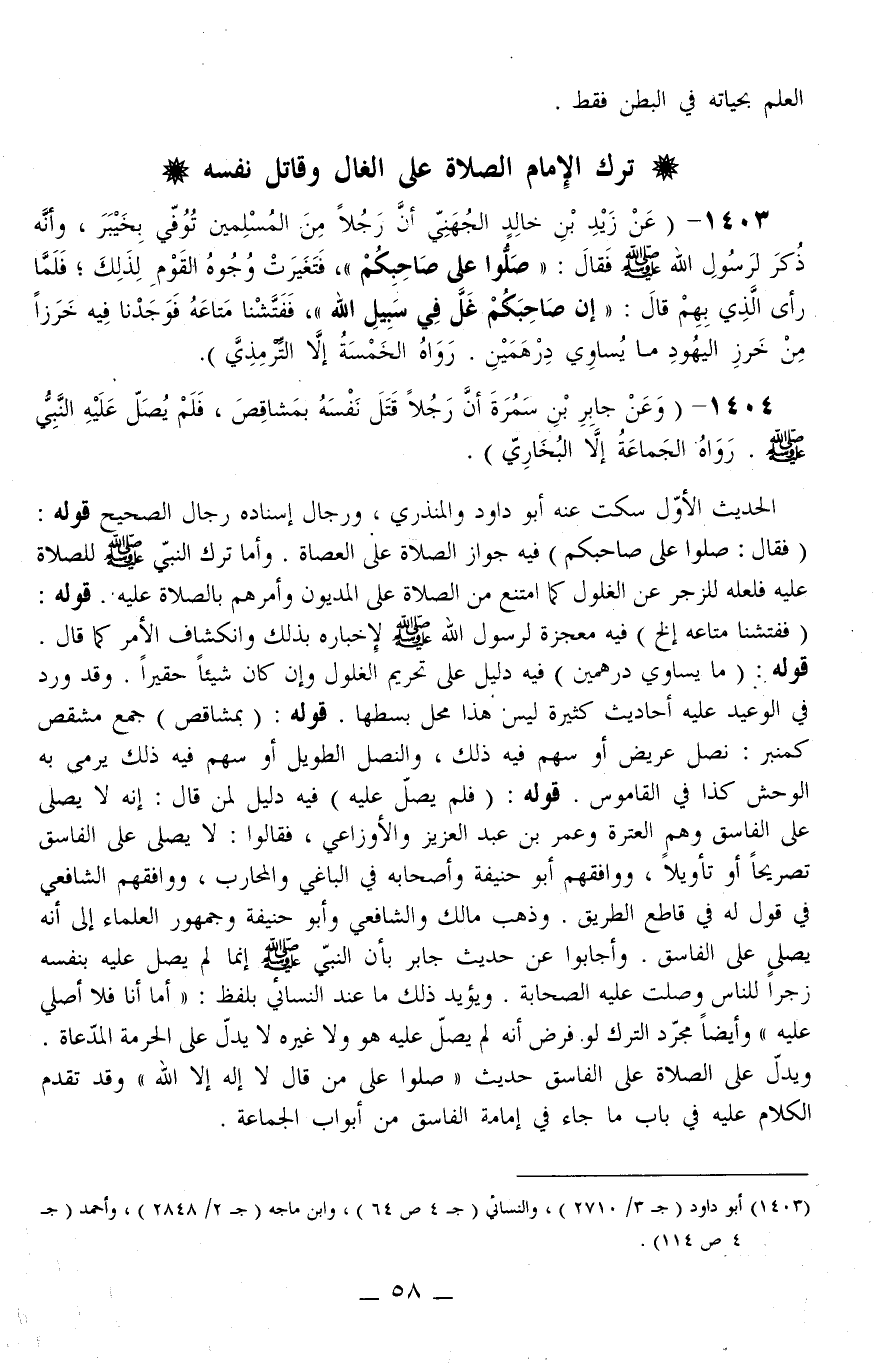 العلم بحياته في البطن فقط .
❋ ترك الإمام الصلاة على الغال وقاتل نفسه ❋
١٤٠٣- ( عَنْ زَيْدِ بْنِ خالِدٍ الجُهَنِيّ أنَّ رَجُلاً مِنَ المُسْلِمين تُوُفِّي بِخَيْبَرَ ، وأنَّه
ذُكرَ لرَسُولِ الله ﷺ فَقالَ : « صَلُّوا على صَاحِبِكُمْ »، فَتَغَيرَتْ وُجُوهُ القَوْمِ لِذَلِكَ ؛ فَلَمَّا
رأى الَّذِي بِهِمْ قالَ : « إن صَاحِبَكُمْ غَلَّ فِي سَبِيلِ الله »، فَفَتَّشْنا مَتاعَهُ فَوَجَدْنا فِيه خَرَزاً
مِنْ خَرزِ اليهُودِ مـا يُساوِي دِرْهَمَيْنِ . رَوَاهُ الخَمْسَةُ إلَّا التِّرْمِذِيَّ ).
١٤٠٤- ( وَعَنْ جابِرِ بْنِ سَمُرَةَ أنَّ رَجُلاً قَتَلَ نَفْسَهُ بمَشاقِصَ ، فَلَمْ يُصَلّ عَلَيْهِ النَّبِيُّ
ﷺ . رَوَاهُ الجَماعَةُ إلَّا البُخَارِيّ ) .
الحديث الأوّل سكت عنه أبو داود والمنذري ، ورجال إسناده رجال الصحيح قوله :
( فقال : صلوا على صاحبكم ) فيه جواز الصلاة على العصاة . وأما ترك النبيّ ﷺ للصلاة
عليه فلعله للزجر عن الغلول كما امتنع من الصلاة على المديون وأمرهم بالصلاة عليه . قوله :
( ففتشنا متاعه إلخ ) فيه معجزة لرسول الله ﷺ لإخباره بذلك وانكشاف الأمر كما قال .
قوله : ( ما يساوي درهمين ) فيه دليل على تحريم الغلول وإن كان شيئاً حقيراً . وقد ورد
في الوعيد عليه أحاديث كثيرة ليس هذا محل بسطها . قوله : ( بمشاقص ) جمع مشقص
كمنبر : نصل عريض أو سهم فيه ذلك ، والنصل الطويل أو سهم فيه ذلك يرمى به
الوحش كذا في القاموس . قوله : ( فلم يصلّ عليه ) فيه دليل لمن قال : إنه لا يصلى
على الفاسق وهم العترة وعمر بن عبد العزيز والأوزاعي ، فقالوا : لا يصلى على الفاسق
تصريحاً أو تأويلاً ، ووافقهم أبو حنيفة وأصحابه في الباغي والمحارب ، ووافقهم الشافعي
في قول له في قاطع الطريق . وذهب مالك والشافعي وأبو حنيفة وجمهور العلماء إلى أنه
يصلى على الفاسق . وأجابوا عن حديث جابر بأن النبيّ ﷺ إنما لم يصل عليه بنفسه
زجراً للناس وصلت عليه الصحابة . ويؤيد ذلك ما عند النسائي بلفظ : « أما أنا فلا أصلي
عليه » وأيضاً مجرّد الترك لو فرض أنه لم يصلّ عليه هو ولا غيره لا يدلّ على الحرمة المدّعاة .
ويدلّ على الصلاة على الفاسق حديث « صلوا على من قال لا إله إلا الله » وقد تقدم
الكلام عليه في باب ما جاء في إمامة الفاسق من أبواب الجماعة .
(١٤٠٣) أبو داود ( جـ ٣/ ٢٧١٠ ) ، والنسائي ( جـ ٤ ص ٦٤ ) ، وابن ماجه ( جـ ٢/ ٢٨٤٨ ) ، وأحمد ( جـ
٤ ص ١١٤) .
_ ٥٨ _